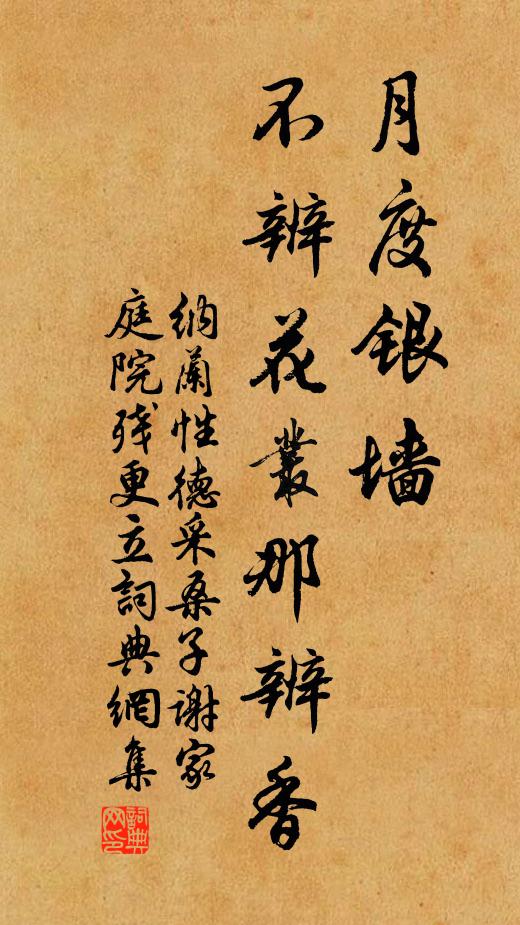 月度银墙
不辨花叢那辨香
纳蘭性德采桑子谢家
庭院残更立詞典網集
詞典网印